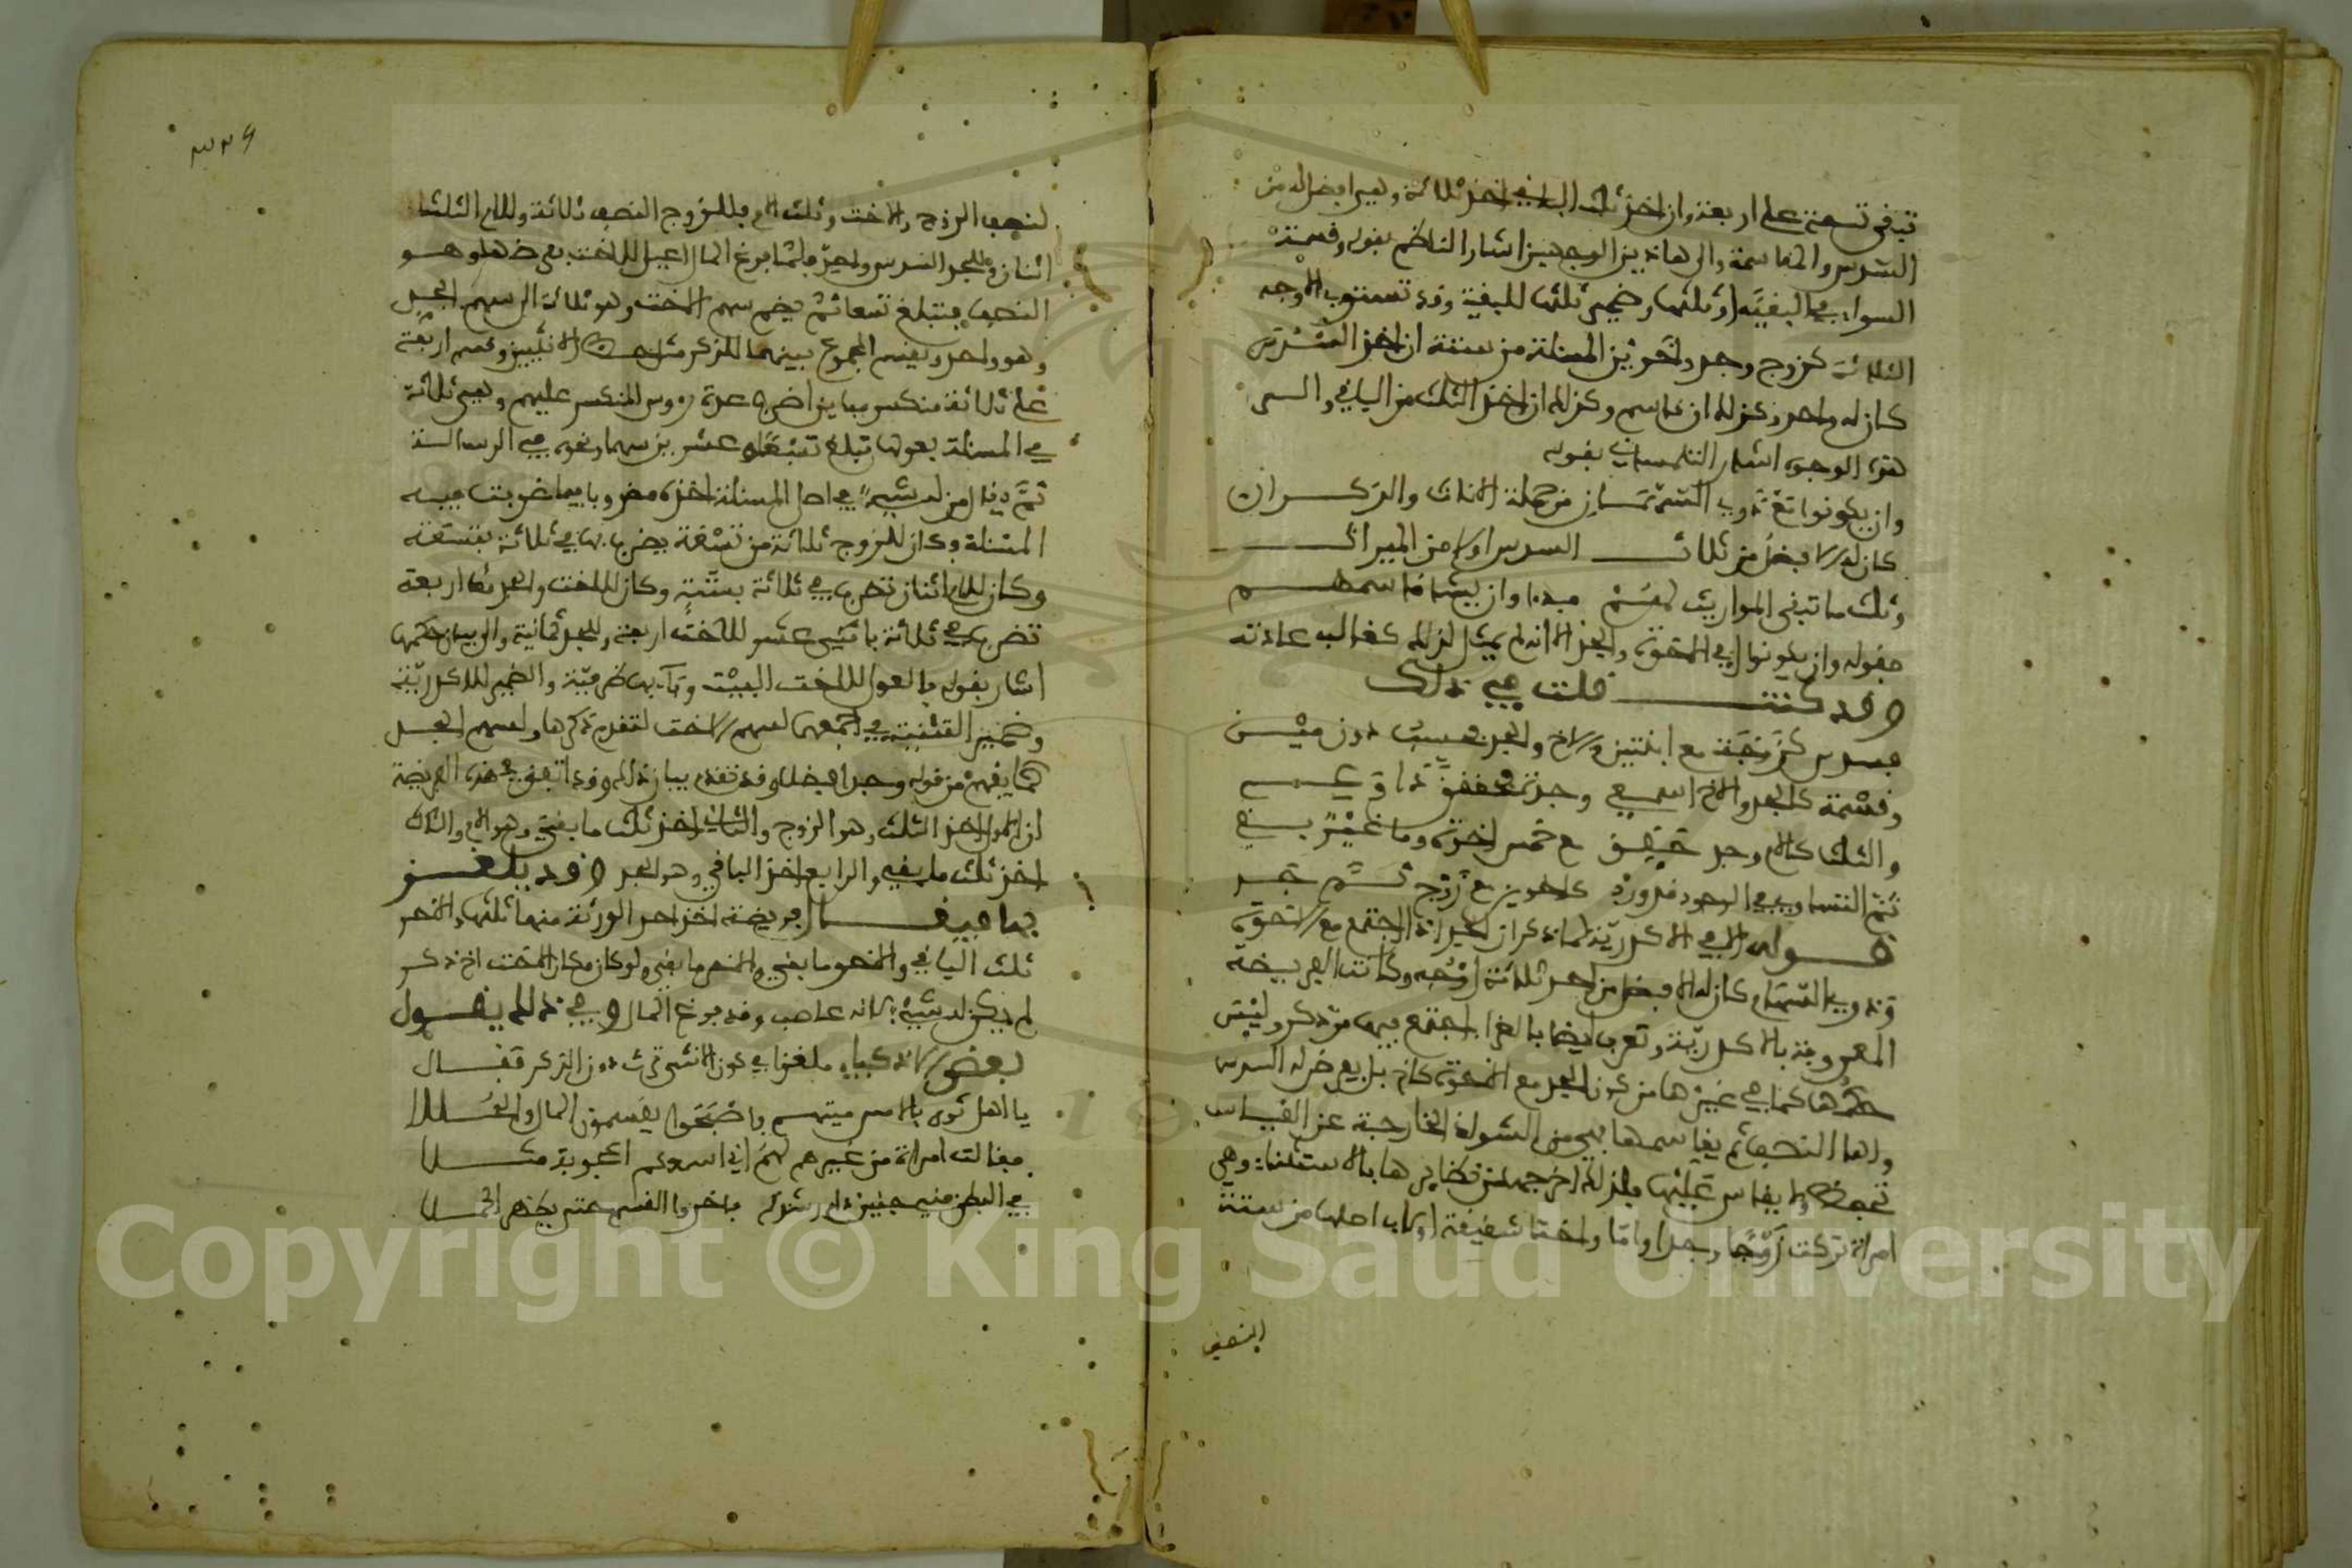 تبقى تسعة على اربعة وان اخذ ثلث الباقي اخذ ثلاثة وهي افضل له من
السدس والمقاسمة والى هاذين الوجهين اشار الناظم بقوله وقسمة
السواء في البقية او ثلثها وضمير ثلثها للبقية وقد تستوي الاوجه
الثلاثة كزوج وجد واخوين المسئلة من ستة ان اخذ السدس
كان له واحد وكذلك ان قاسم وكذلك ان اخذ الثلث من الباقي والى
هذه الوجوه اشار التلمساني بقوله
وان يكونوا مع ذوي السهمان من جملة الاناث والذكران
كان له الافضل من ثلاث السدس اولا من الميراث
وثلث ما تبقي المواريث لهم وان يشا قاسمهم
فقوله وان يكونوا اي الاخوة والجد الا انه لم يمثل لذلك كغالب عادته
وقد كنت قلت في ذلك
فسدس كزوجة مع ابنتين والاخ والجد دون مين
وقسمة كالجد والاخ وجدة
والثلث كالام وجد مع خمس اخوة وما
ثم التساوي في الوجود كاخوين مع زوج ثم جد
قوله الا في الاكدرية لما ذكر ان الجد اذا اجتمع مع الاخوة
وذوي السهام كان له الافضل من احد ثلاثة اوجه وكانت الفريضة
المعروفة بالاكدرية وتعرف ايضا بالغرا اجتمع فيها من ذكر وليس
حكمها كما في غيرها من كون الجد مع الاخوة كاخ بل يعرض له السدس
ولها النصف ثم يقاسمها فهي من الشواذ الخارجة عن القياس
تحفظ ولا يقاس عليها فلذلك اخرجها من نظايرها بالاستثناء وهي
امراة تركت زوجا وجدا واما واختا شقيقة او لاب اصلها من ستة
النصف
لنصف الزوج والاخت وثلث الام فللزوج النصف ثلاثة وللام الثلث
اثنان وللجد السدس واحد فلما فرغ المال اعيل للاخت بفرضها وهو
النصف فتبلغ تسعا ثم يضم سهم الاخت وهو ثلاثة الى سهم الجد
وهو واحد ويقسم المجموع بينهما للذكر مثل حظ الانثيين وقسم اربعة
على ثلاثة منكسر مباين اضرب عدة رءوس المنكسر عليهم وهي ثلاثة
في المسئلة بعولها تبلغ سبعة وعشرين سهما ونحوه في الرسالة
ثم يقال من له شيء في اصل المسئلة اخذه مضروبا فيما ضربت فيه
المسئلة وكان للزوج ثلاثة من تسعة يضربها في ثلاثة بتسعة
وكان للام اثنان تضرب في ثلاثة بستة وكان للاخت والجد اربعة
تضرب في ثلاثة باثني عشر للاخت اربعة وللجد ثمانية والى بيان حكمها
اشار بقوله فالعول للاخت البيت وباء بها ظرفية والضمير للاكدرية
وضمير التثنية في اجمعهما لسهم الاخت لتقدم ذكرها ولسهم الجد
كما يفهم من قوله وجد افضلا وقد تقدم بيان ذلك وقد اتفق في هذه الفريضة
ان الاول اخذ الثلث وهو الزوج والثاني اخذ ثلث ما بقي وهو الام والثالث
اخذ ثلث ما بقي والرابع اخذ الباقي وهو الجد وقد يلغز
بها فيقال فريضة اخذ احد الورثة منها ثلثها والاخر
ثلث الباقي والاخر ما بقي ولو كان مكان الاخت اخ ذكر
لم يكن له شيء لانه عاصب وقد فرغ المال وفي ذلك يقول
بعض الاذكياء ملغزا في كون الانثى ترث دون الذكر فقال
يا اهل ثوى بالامس ميتهم فاصبحوا يقسمون المال والحللا
فقالت امراة من غيرهم لهم اني اسمعكم اعجوبة مثلا
في البطن مني جنين دام رشدكم فاخروا القسم حتى يظهر الحملا